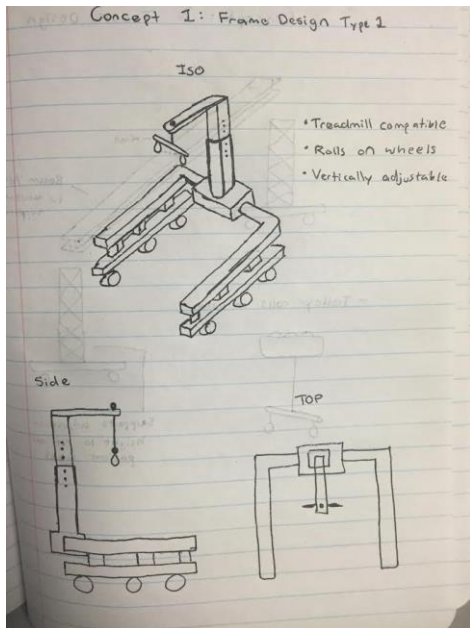 Concept 1: Frame Design Type 2
ISO
• Treadmill compatible
• Rolls on wheels
• Vertically adjustable
Side
TOP